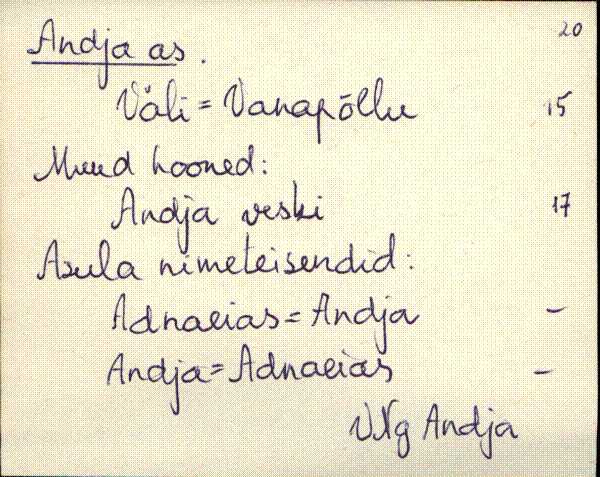 20
Andja as.
Väli = Vanapõllu 15
Muud hooned:
Andja veski 17
Asula nimeteisendid:
Adnaeias = Andja –
Andja = Adnaeias –
VNg Andja